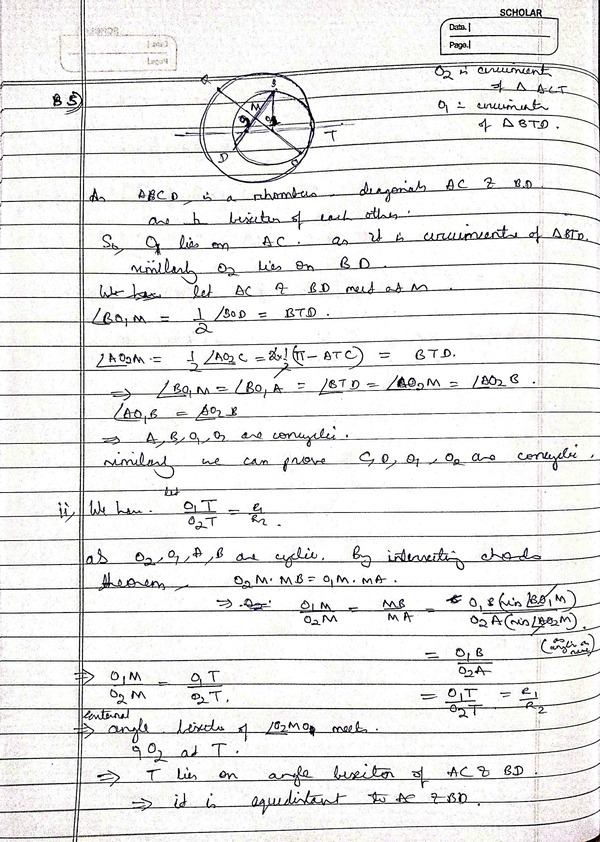 SCHOLAR
Date.
Page.
O2 is circumcentre
of Δ ACT
O1 = circumcentre
of Δ BTD.
B5)
B
M
T
D
As ABCD, is a rhombus. diagonals AC & BD.
are ⊥ bisector of each other.
So, O1 lies on AC. as it is circumcentre of ΔBTD.
similarly O2 lies on BD.
let AC & BD meet at M.
∠BO1M = 1/2 ∠BOD = BTD.
∠AO2M = 1/2 ∠AO2C = 2x1/2 (π - ATC) = BTD.
⇒ ∠BO1M = ∠BO1A = ∠BTD = ∠AO2M = ∠AO2B.
∠AO1B = AO2B
⇒ A, B, O1, O2 are concyclic.
similarly we can prove C, D, O1, O2 are concyclic.
ii, We have. let O1T/O2T = R1/R2.
as O2, O1, A, B are cyclic. By intersecting chords
theorem, O2M·MB = O1M·MA.
⇒ O1M/O2M = MB/MA = O1B(sin∠BO1M)/O2A(sin∠AO2M).
= O1B/O2A
⇒ O1M/O2M = O1T/O2T. = O1T/O2T = R1/R2
external
⇒ angle bisector of ∠O2MO1 meets.
O1O2 at T.
⇒ T lies on angle bisector of AC & BD.
⇒ it is equidistant to AC & BD.